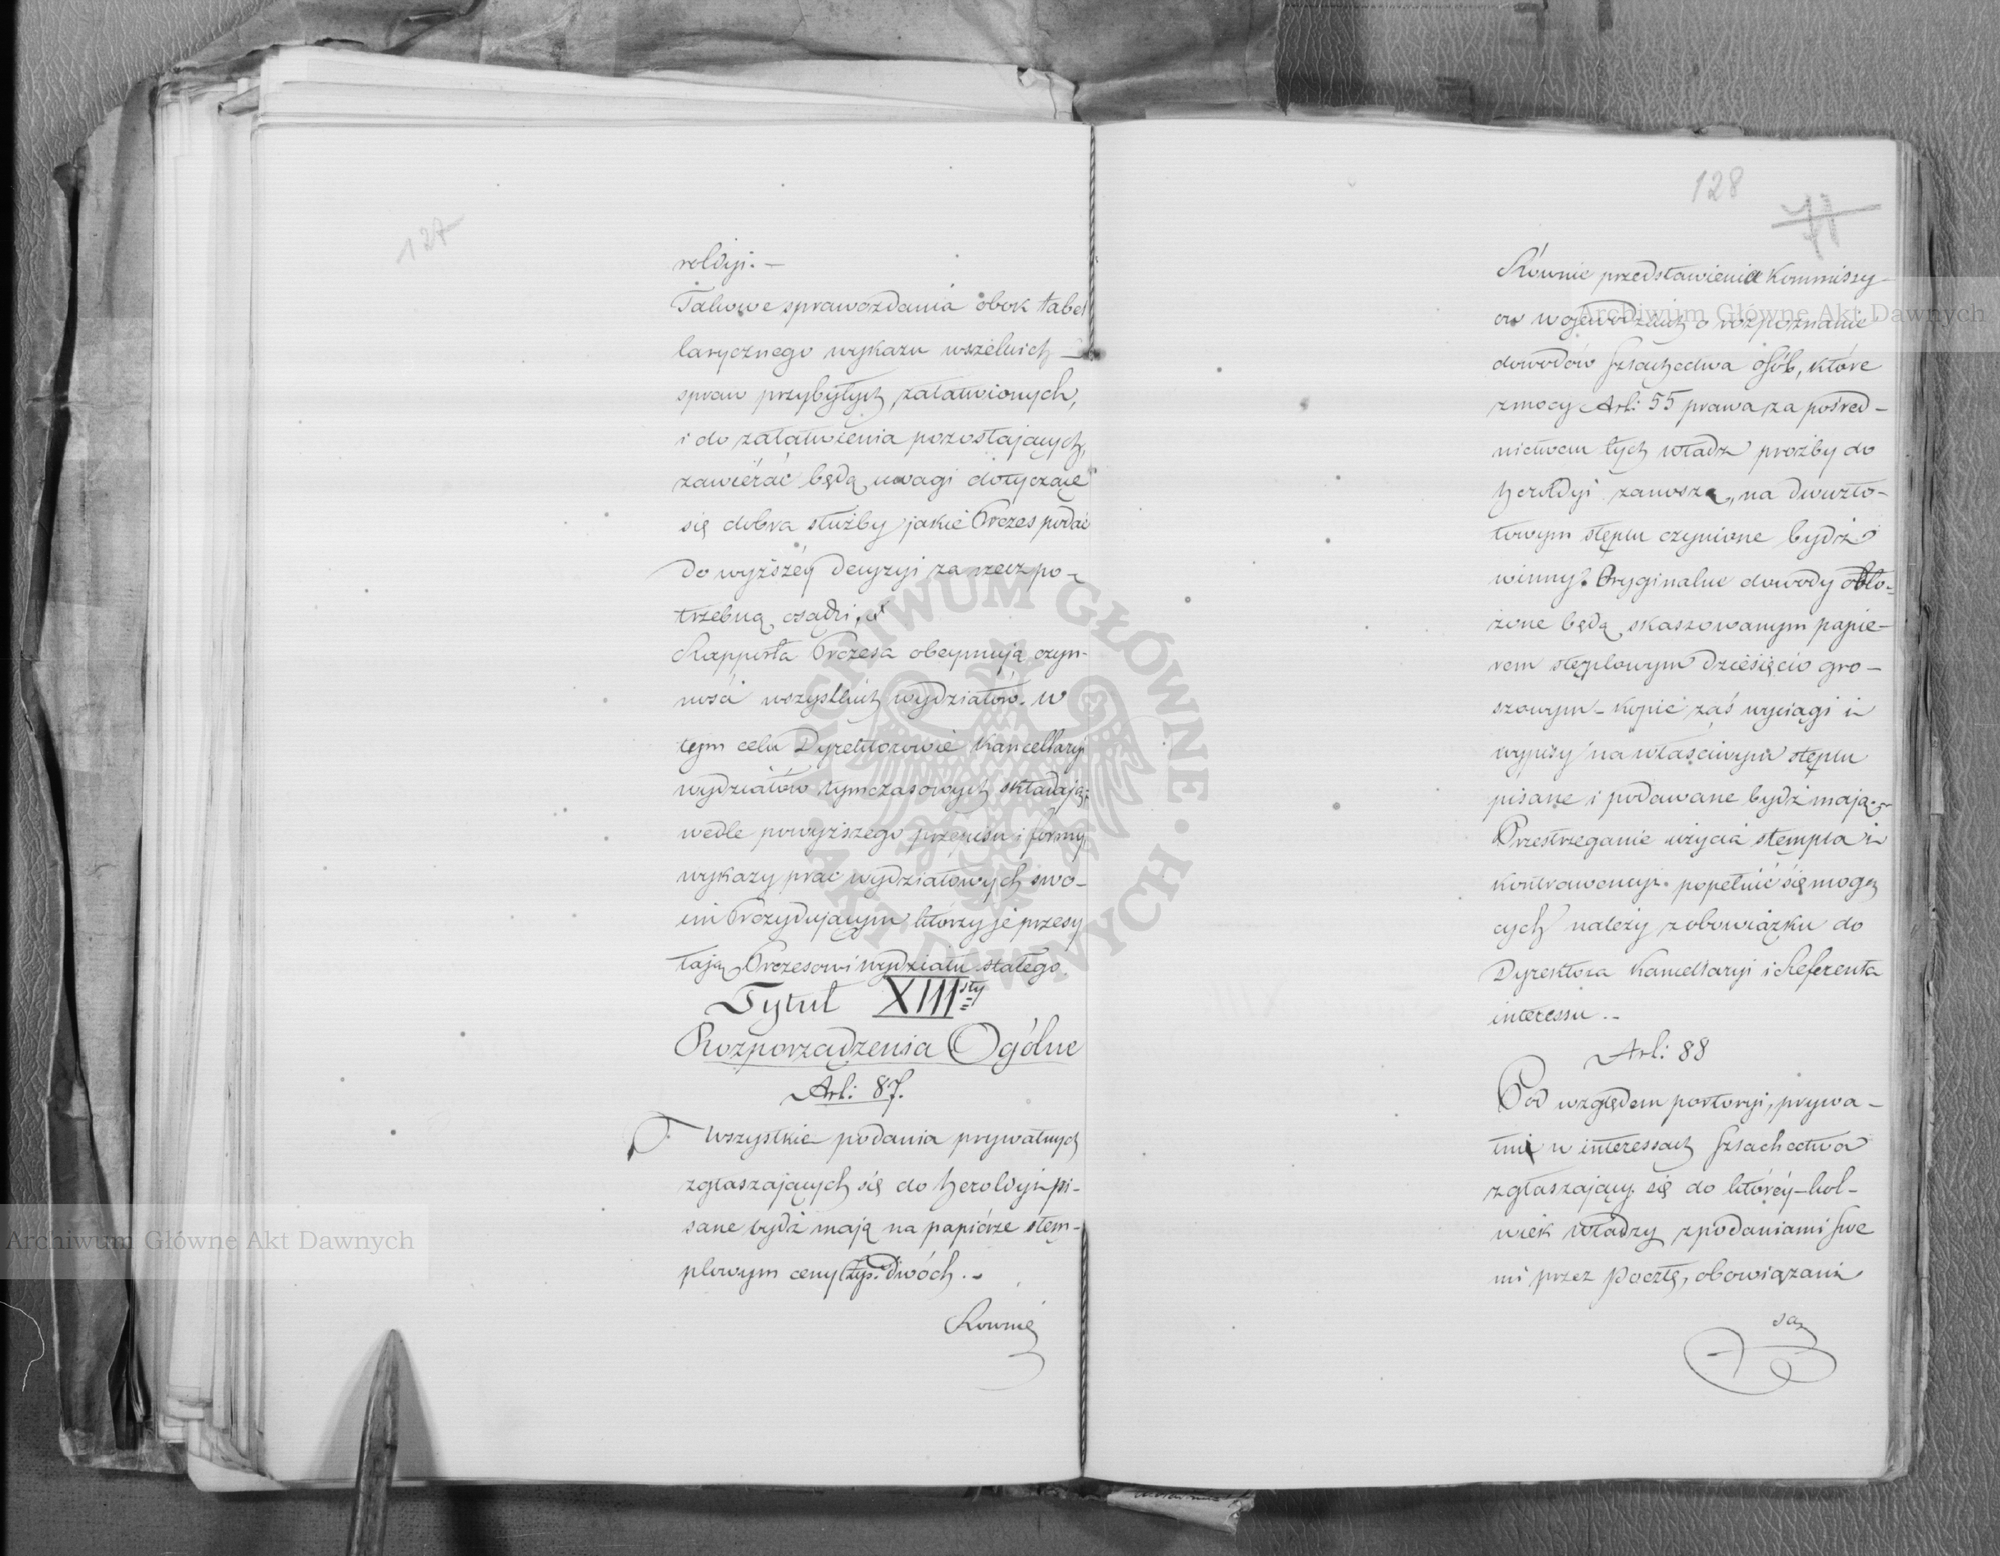 127
roldyi. —
Takowe sprawozdania obok tabel
larycznego wykazu wszelkich —
spraw przybyłych, załatwionych,
i do załatwienia pozostających,
zawiérać będą uwagi dotyczące
się dobra służby jakie Prezes podać
do wyższéy decyzyi za rzecz po-
trzebną osądzi.
Rapporta Prezesa obeymują czyn-
ność wszystkich wydziałów. W
tym celu Dyrektorowie Kancellaryi
wydziałów tymczasowych składają
wedle powyższego przepisu i formy
wykazy prac wydziałowych swo-
im Prezydującym, którzy je przesy
łają Prezesowi wydziału stałego.
Tytuł XIII sty
Rozporządzenia Ogólne
Art: 87.
Wszystkie podania prywatnych
zgłaszających się do Heroldyi pi-
sane bydź mają na papiérze stem-
plowym ceny złp. Dwóch. —
Rownie
128
71
Równie przedstawienia Kommissy-
ow wojewodzkich o rozpoznanie
dowodów Szlachectwa osób, które
z mocy Art: 55 prawa za pośred-
nictwem tych władz proźby do
Heroldyi zanoszą, na dwuzło-
towym stęplu czynione bydź
winny. Oryginalne dowody obło-
żone będą skassowanym papie-
rem stęplowym dziesięcio gro-
szowym — kopie zaś wyciągi i
wypisy na właściwym stęplu
pisane i podawane bydź mają.
Przestrzeganie użycia stempla i
kontrawencyi popełnić się mogą
cych należy z obowiązku do
Dyrektora Kancellaryi i Referenta
interessu. —
Art: 88
Pod względem portoryi, prywa-
tni w interessach Szlachectwa
zgłaszający się do któréy-kol-
wiek władzy z podaniami swe
mi przez Pocztę, obowiązani
są
Archiwum Główne Akt Dawnych
Archiwum Główne Akt Dawnych
ARCHIWUM GŁÓWNE • AKT DAWNYCH •